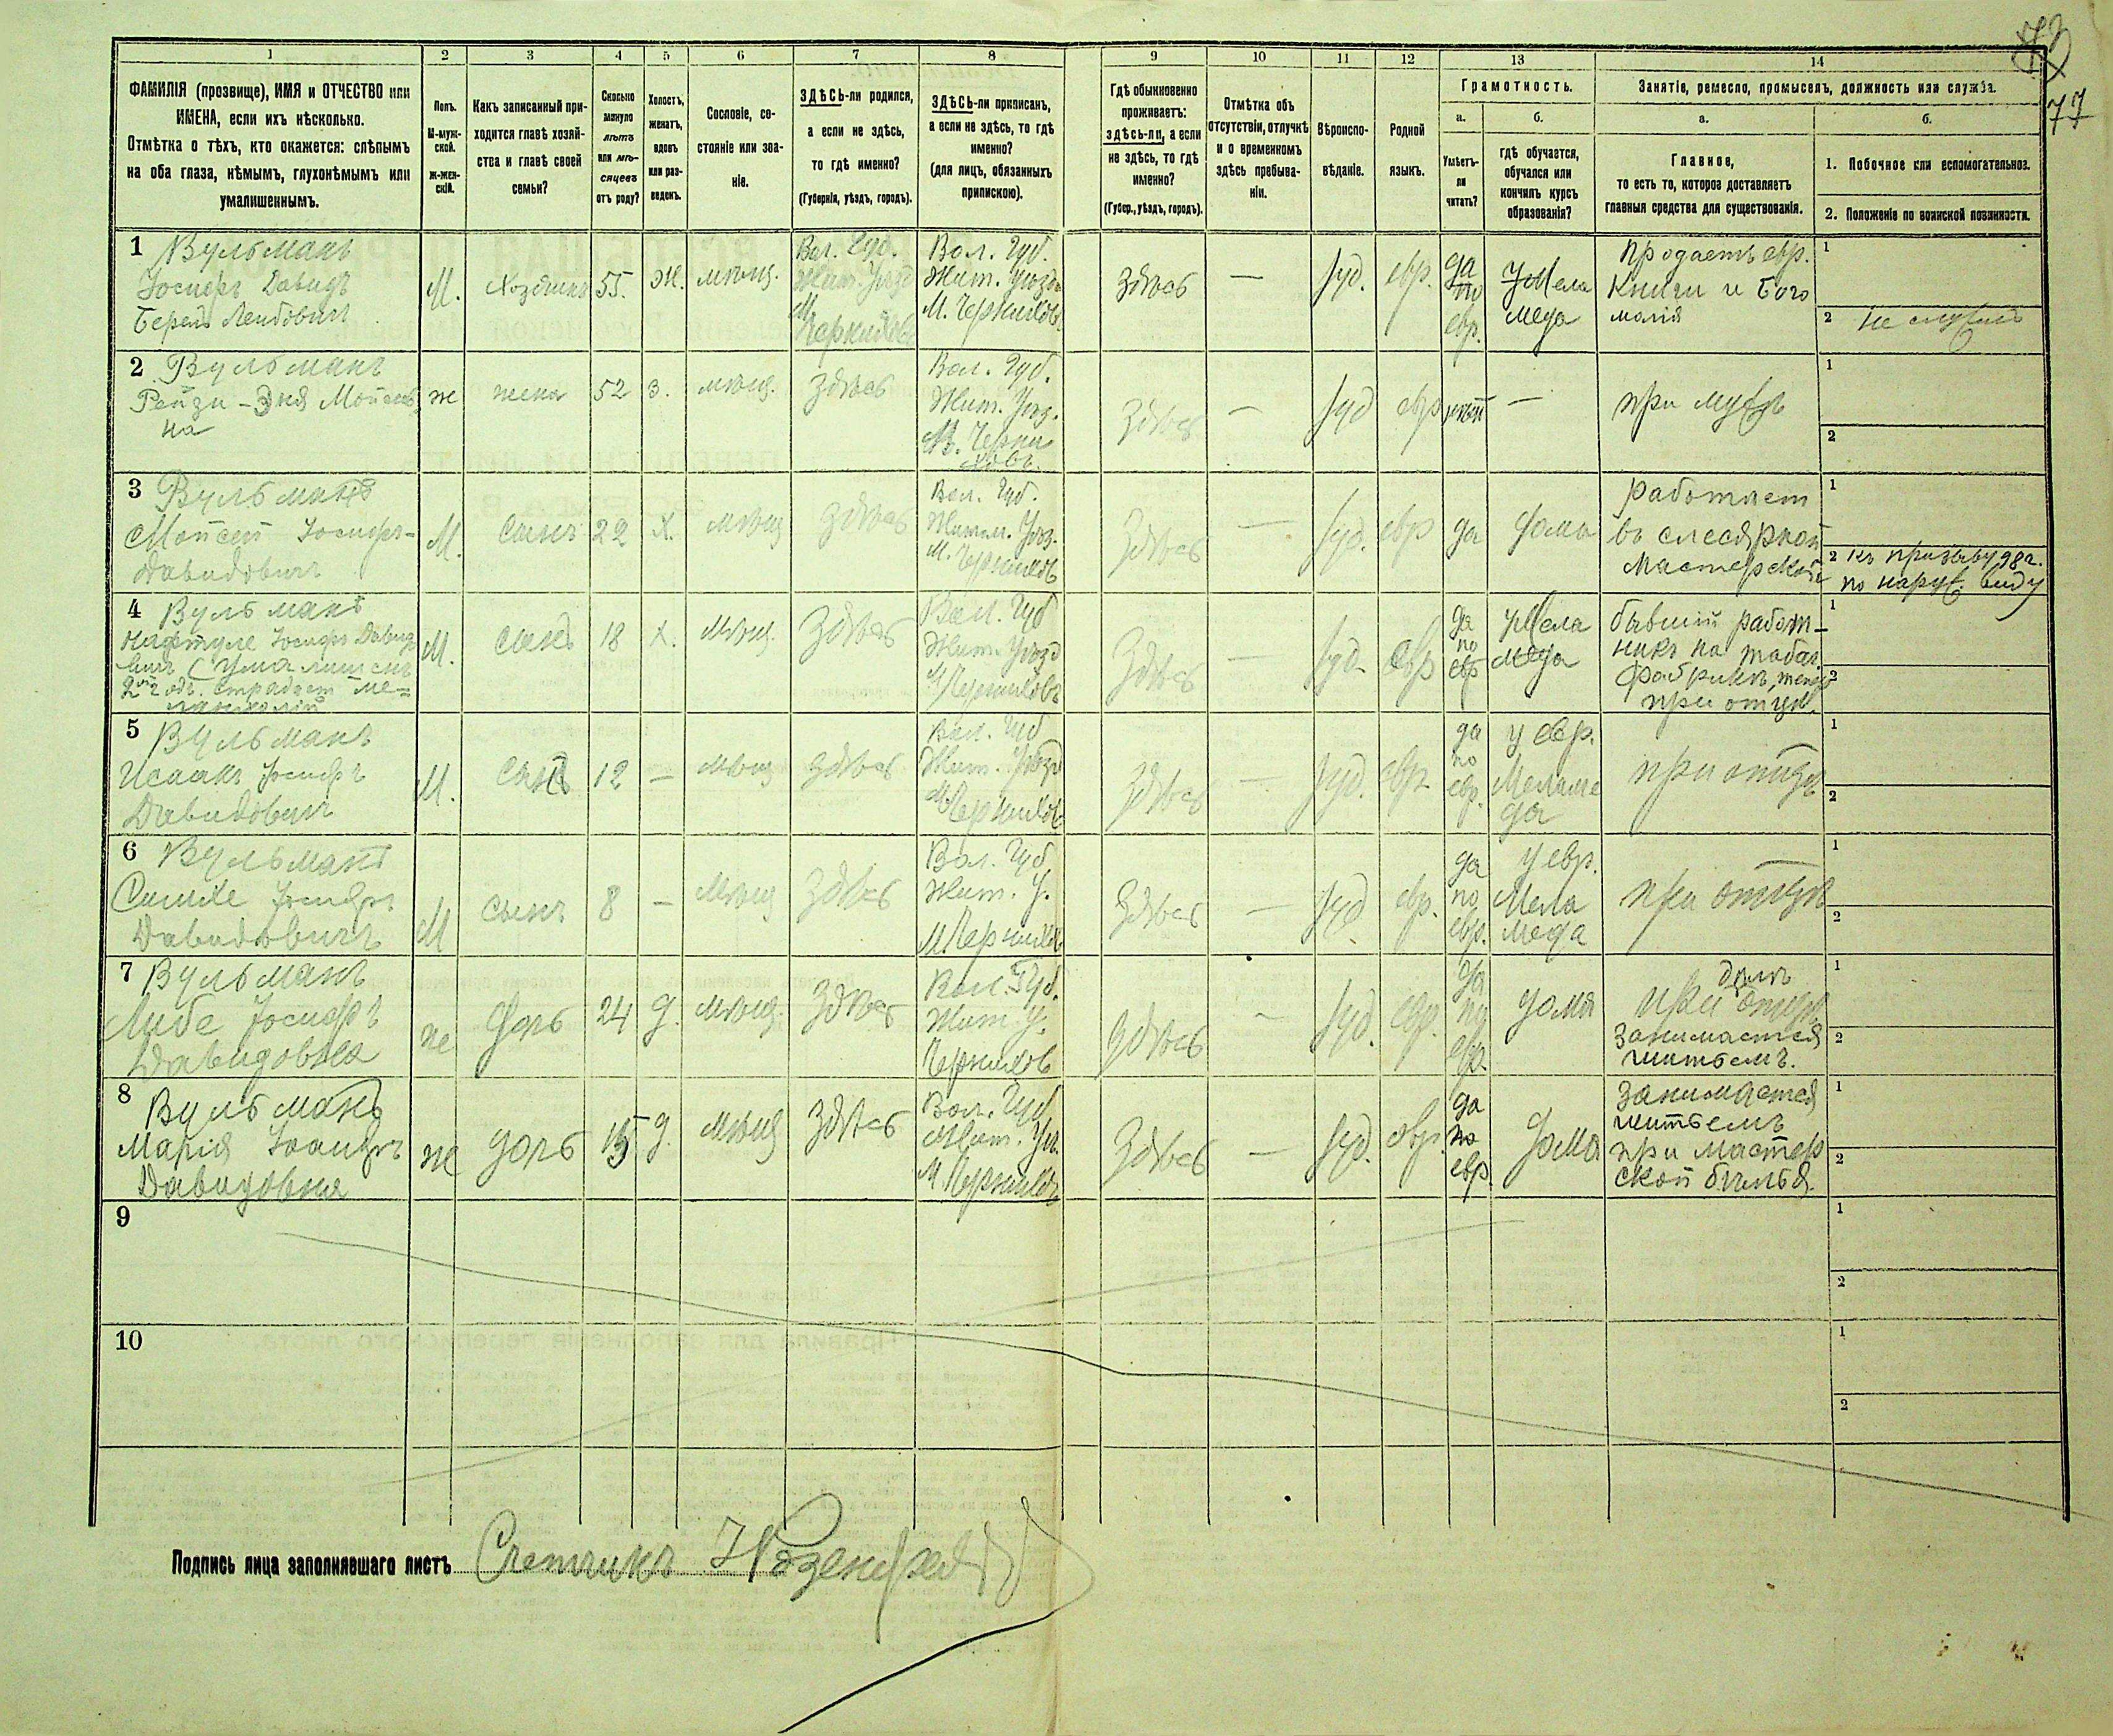 77
1 2 3 4 5 6 7 8 9 10 11 12 13 14
ФАМИЛІЯ (прозвище), ИМЯ и ОТЧЕСТВО или
ИМЕНА, если ихъ нѣсколько.
Отмѣтка о тѣхъ, кто окажется: слѣпымъ
на оба глаза, нѣмымъ, глухонѣмымъ или
умалишеннымъ.
Полъ.
М-муж-
ской.
Ж-жен-
скій.
Какъ записанный при-
ходится главѣ хозяй-
ства и главѣ своей
семьи?
Сколько
минуло
лѣтъ
или мѣ-
сяцевъ
отъ роду?
Холостъ,
женатъ,
вдовъ
или раз-
веденъ.
Сословіе, со-
стояніе или зва-
ніе.
ЗДѢСЬ-ли родился,
а если не здѣсь,
то гдѣ именно?
(Губернія, уѣздъ, городъ).
ЗДѢСЬ-ли приписанъ,
а если не здѣсь, то гдѣ
именно?
(для лицъ, обязанныхъ
припискою).
Гдѣ обыкновенно
проживаетъ:
здѣсь-ли, а если
не здѣсь, то гдѣ
именно?
(Губер., уѣздъ, городъ).
Отмѣтка объ
отсутствіи, отлучкѣ
и о временномъ
здѣсь пребыва-
ніи.
Вѣроиспо-
вѣданіе.
Родной
языкъ.
Грамотность.
а.
Умѣетъ-
ли
читать?
б.
гдѣ обучается,
обучался или
кончилъ курсъ
образованія?
Занятіе, ремесло, промыселъ, должность или служба.
а.
Главное,
то есть то, которое доставляетъ
главныя средства для существованія.
б.
1. Побочное или вспомогательное.
2. Положеніе по воинской повинности.
1 Вульманъ
Іосифъ Давидъ
Берель Лейбовичъ
М.
Хозяинъ
55.
Ж.
мѣщ.
Вол. Губ.
Жит. Уѣзд
М.
Черняховъ
Вол. Губ.
Жит. Уѣзд
М. Черняховъ
Здѣсь
—
Іуд.
евр.
да
по
евр.
У Мела
меда
Продаетъ евр.
Книги и Бого
молія
1
2 не служилъ
2 Вульманъ
Рейзи-Эня Мойсеев
на
ж
жена
52
З.
мѣщ.
Здѣсь
Вол. Губ.
Жит. Уѣз.
М. Черня
ховъ.
Здѣсь
—
Іуд
евр
нѣт
—
при мужѣ
1
2
3 Вульманъ
Мойсей Іосифъ-
Давидовичъ
М.
Сынъ
22
Х.
мѣщ
здѣсь
Вол. Губ.
Житом. Уѣз.
М. Черняхов
Здѣсь
—
Іуд.
евр
да
дома
работает
въ слесярной
Мастерской
1
2 къ призыву 98 г.
по наруж. виду
4 Вульманъ
Нафтуле Іосифъ Давидо
вичъ (Умалишенъ
2ой годъ. страдает ме-
ланхоліей
М.
сынъ
18
Х.
мѣщ.
Здѣсь
Вол. Губ
Жит. Уѣзд
М Черняховъ
Здѣсь
—
Іуд.
евр
да
по
евр
У Мела
меда
бывшій работ-
никъ на табач.
фабрикѣ, теперь
при отцѣ.
1
2
5 Вульманъ
Исаакъ Іосифъ
Давидовичъ
М.
Сынъ
12
—
мѣщ
здѣсь
Вол. Губ
Жит. Уѣзд
М Черняхов
Здѣсь
—
Іуд.
евр.
да
по
евр.
у евр.
Меламе
да
при отцѣ
1
2
6 Вульманъ
Симхе Іосифъ
Давидовичъ
М
Сынъ
8
—
мѣщ
Здѣсь
Вол. Губ
Жит. У.
М. Черняхов
Здѣсь
—
Іуд
евр.
да
по
евр.
у евр.
Мела
меда
при отцѣ
1
2
7 Вульманъ
Либе Іосифъ
Давидовна
ж
дочь
24
д.
мѣщ.
Здѣсь
Вол. Губ.
Жит У.
Черняхов
Здѣсь
—
Іуд.
евр.
да
по
евр.
дома
при отцѣ
Занимается
шитьемъ.
1
2
8 Вульманъ
Марія Іосифъ
Давидовна
ж
дочь
15
д.
мѣщ
Здѣсь
Вол. Губ
Жит. Уѣ.
М Черняхов
Здѣсь
—
Іуд.
евр.
да
по
евр.
дома
Занимается
шитьемъ
при мастер
ской бѣлья.
1
2
9
1
2
10
1
2
Подпись лица заполнявшаго листъ Счетчикъ